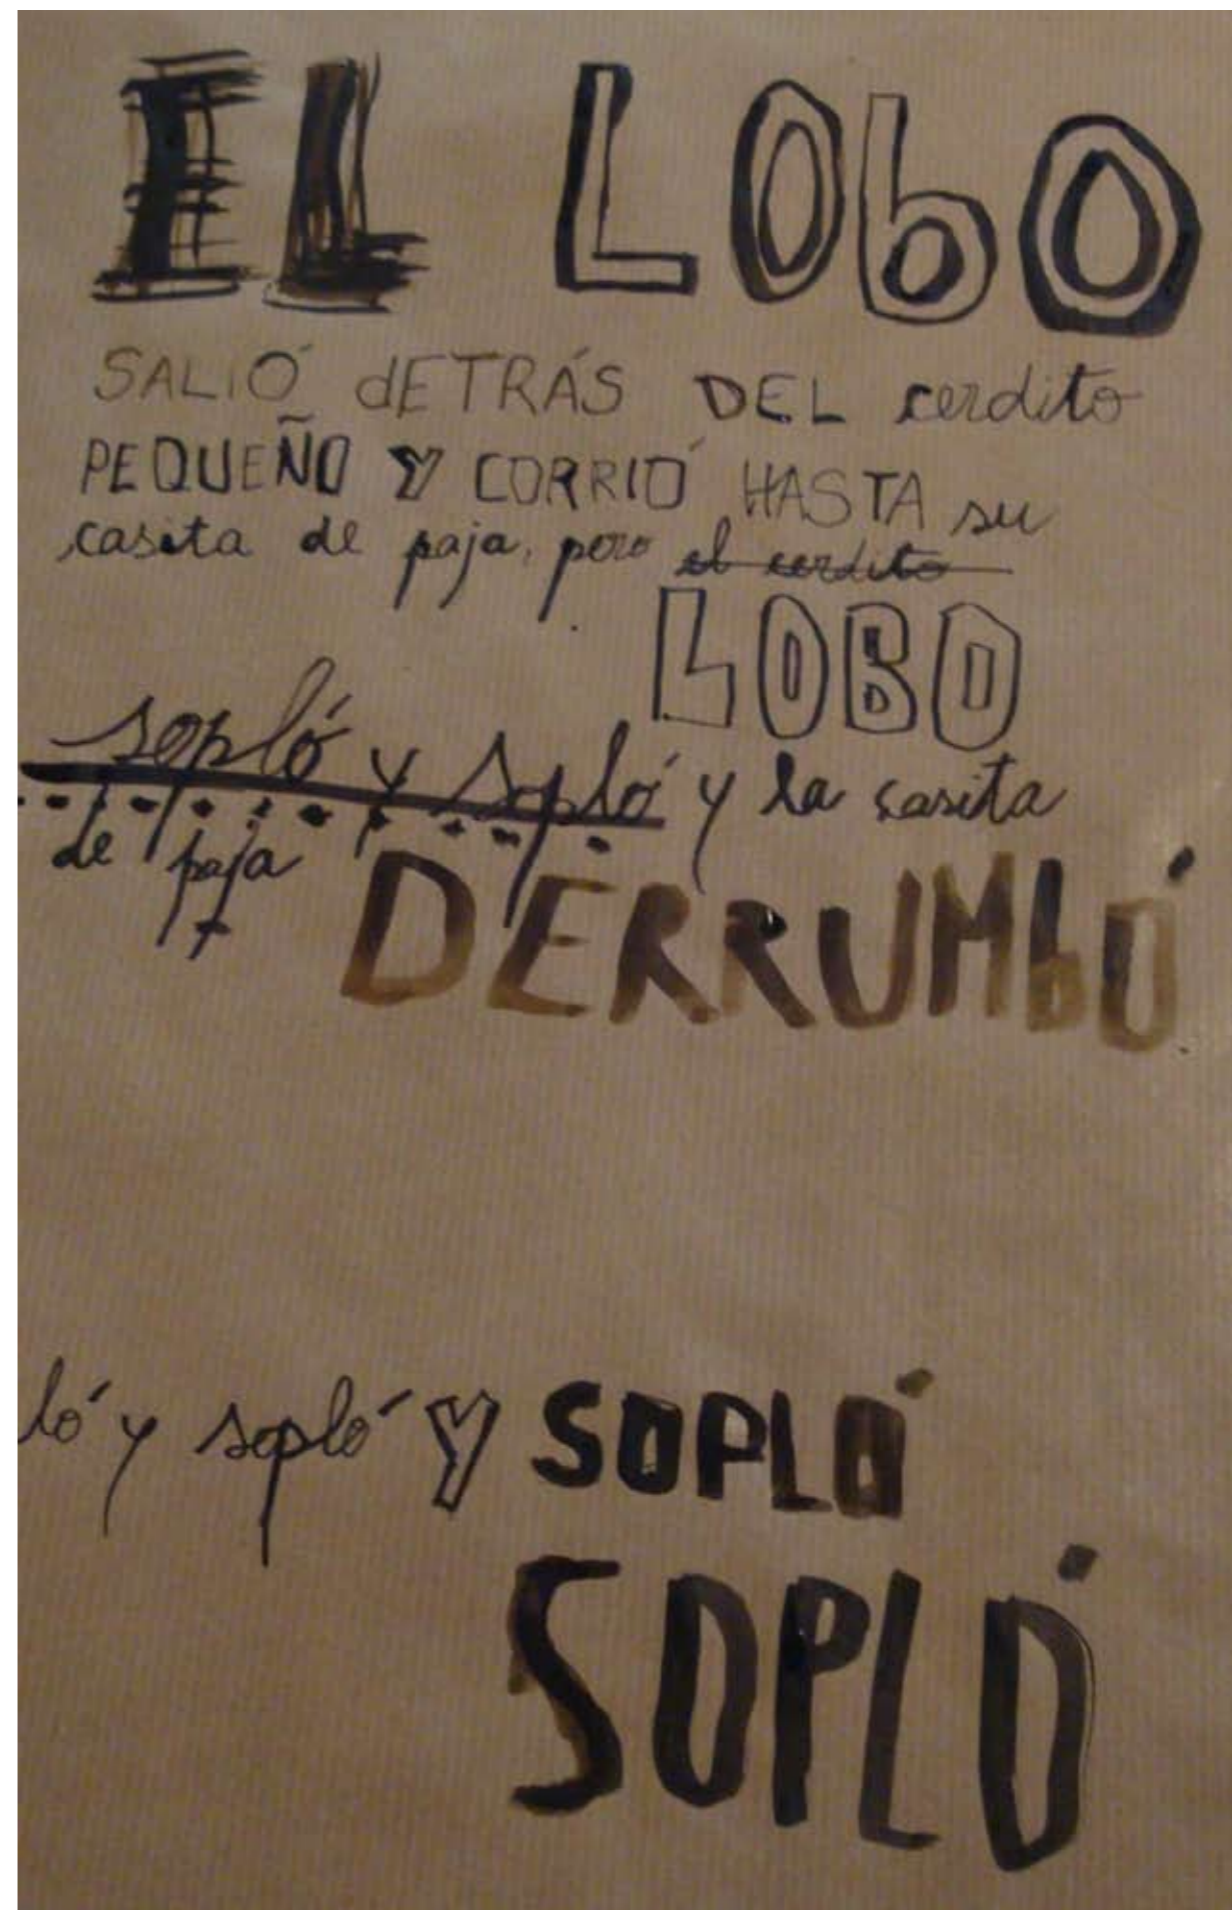 EL LObO
SALIÓ dETRÁS DEL cerdito
PEQUEÑO Y CORRIÓ HASTA su
casita de paja, pero el cerdito
LOBO
sopló y sopló y la casita
de paja DERRUMbÓ
ló y sopló Y SOPLÓ
SOPLÓ